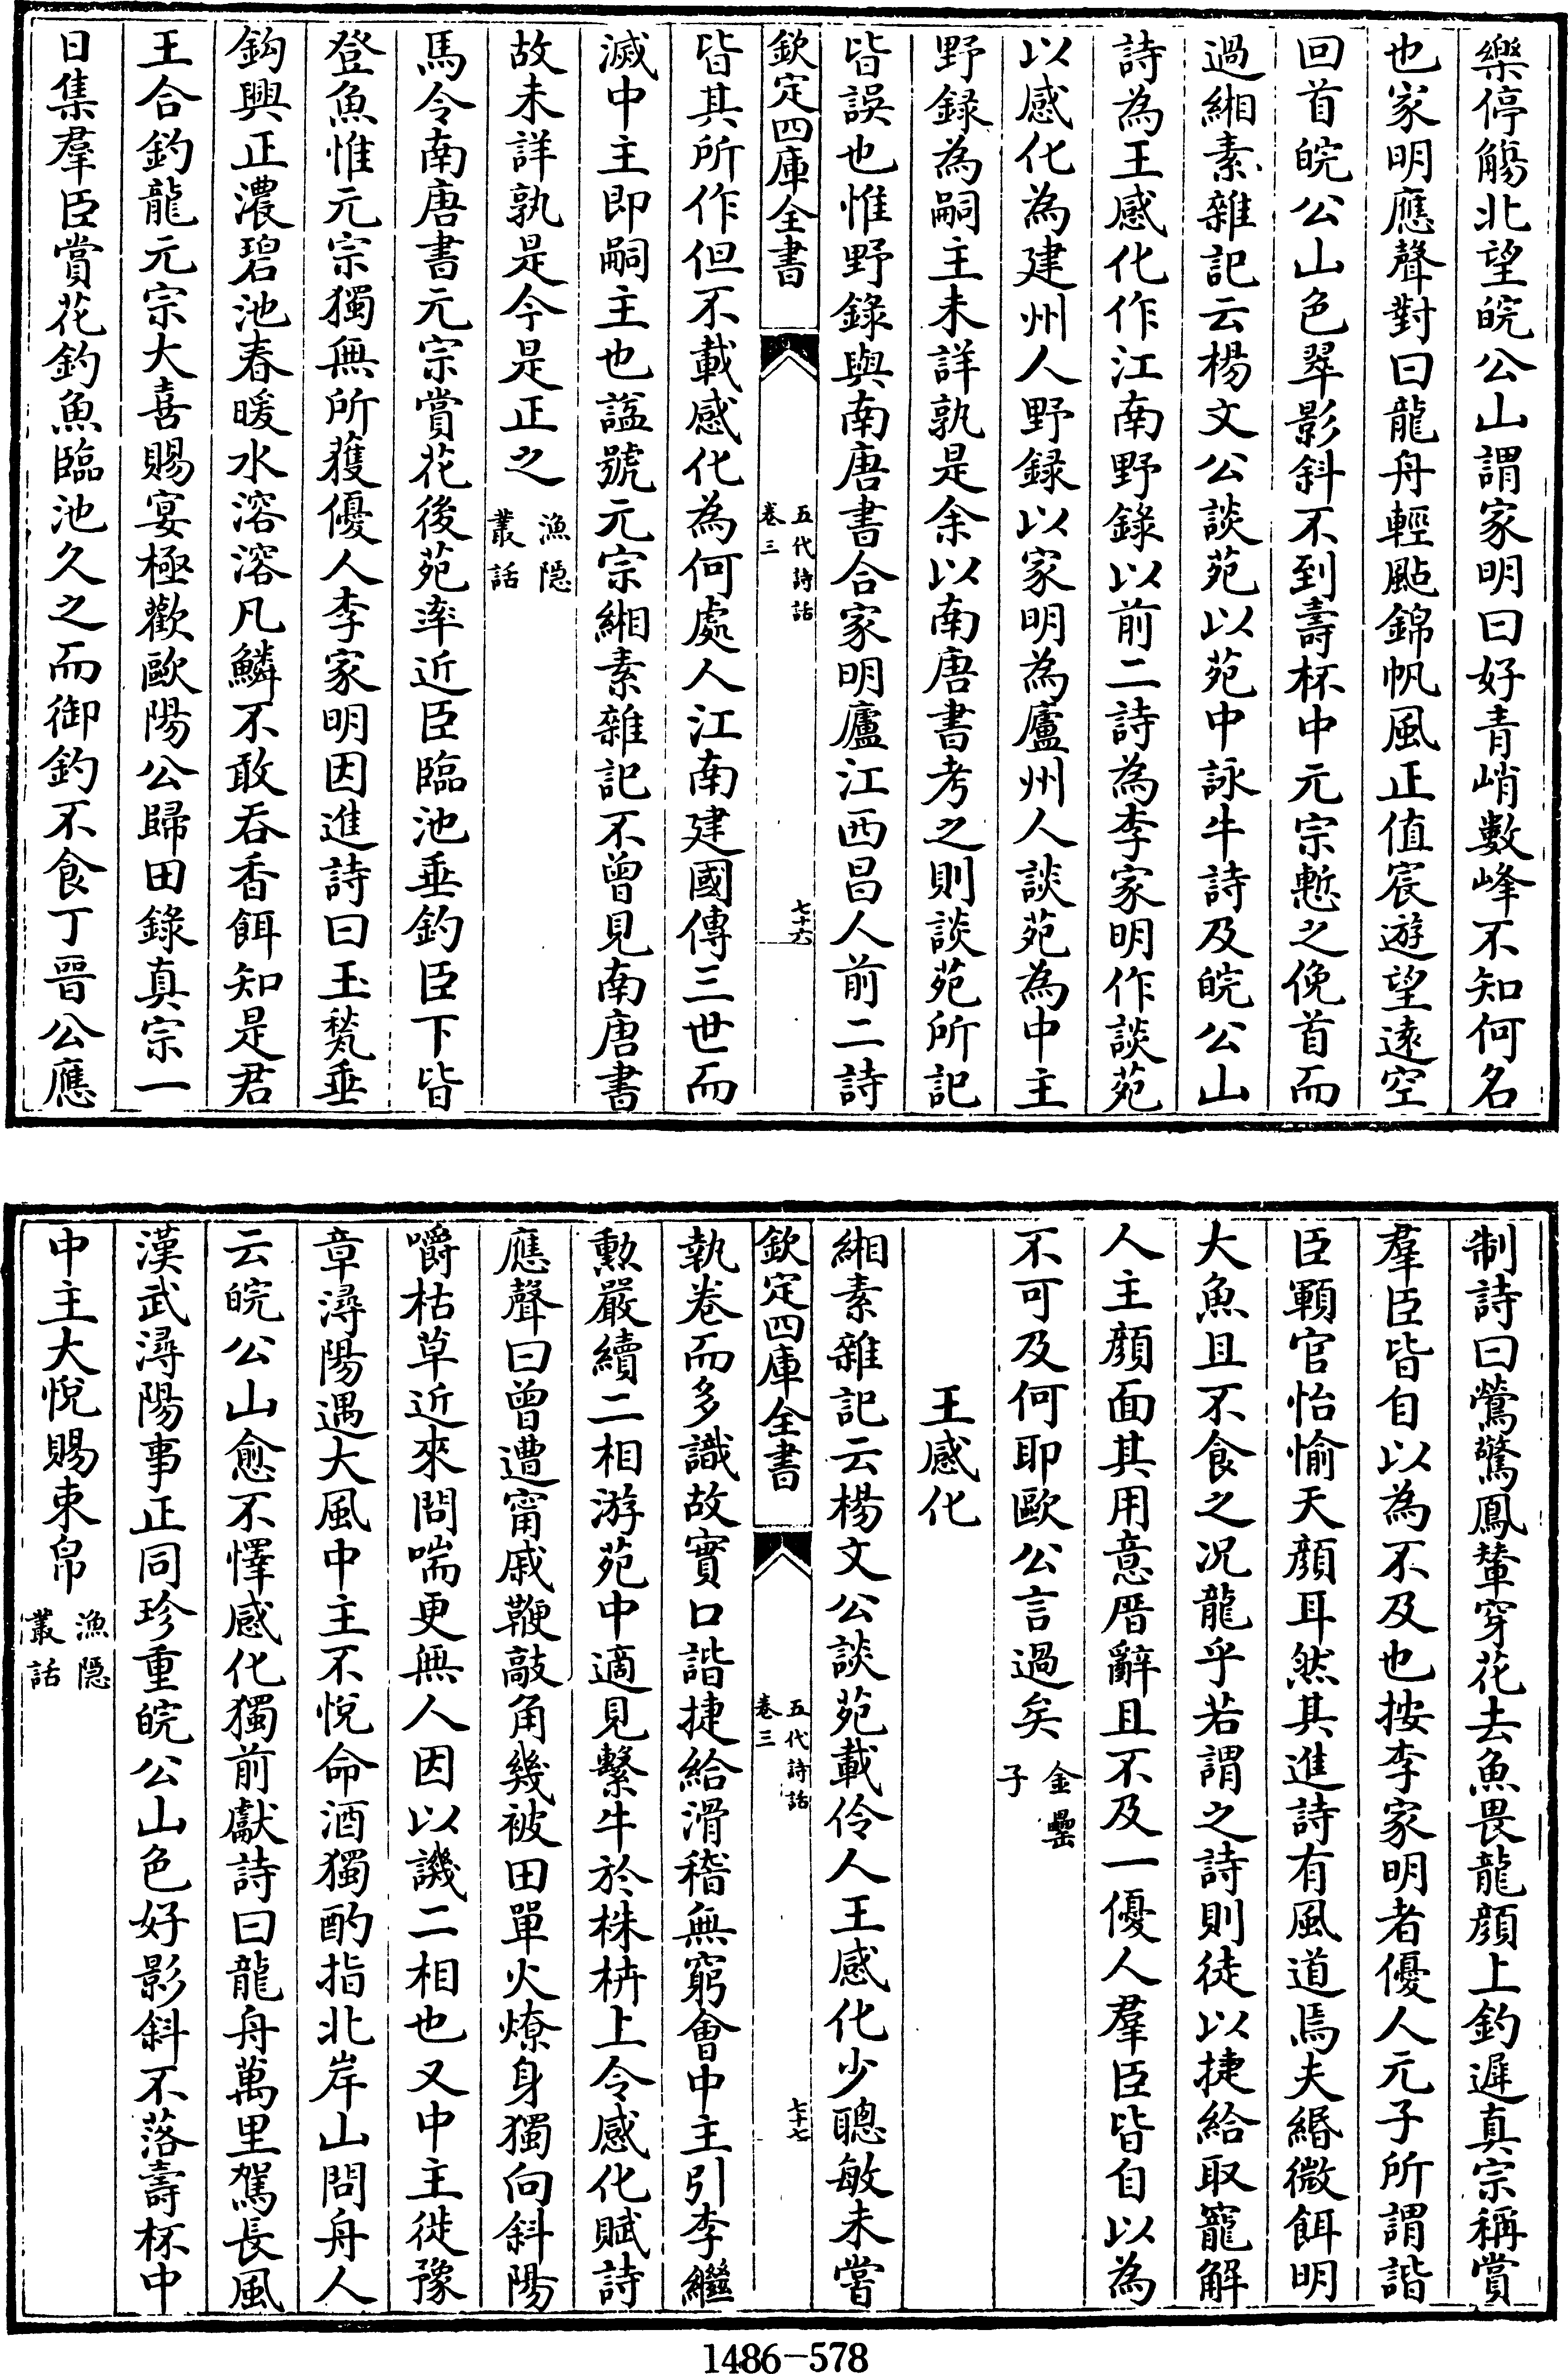 樂停觴北望皖公山謂家明曰好青峭數峰不知何名
也家明應聲對曰龍舟輕颭錦帆風正值宸遊望遠空
回首皖公山色翠影斜不到壽杯中元宗慙之俛首而
過緗素雜記云楊文公談苑以苑中詠牛詩及皖公山
詩為王感化作江南野錄以前二詩為李家明作談苑
以感化為建州人野録以家明為廬州人談苑為中主
野錄為嗣主未詳孰是余以南唐書考之則談苑所記
皆誤也惟野錄與南唐書合家明廬江西昌人前二詩
欽定四庫全書
五代詩話
卷三
七十六
皆其所作但不載感化為何處人江南建國傳三世而
滅中主即嗣主也諡號元宗緗素雜記不曾見南唐書
故未詳孰是今是正之漁隠叢話
馬令南唐書元宗賞花後苑率近臣臨池垂釣臣下皆
登魚惟元宗獨無所獲優人李家明因進詩曰玉甃垂
鈎興正濃碧池春暖水溶溶凡鱗不敢吞香餌知是君
王合釣龍元宗大喜賜宴極歡歐陽公歸田錄真宗一
日集羣臣賞花釣魚臨池久之而御釣不食丁晉公應
制詩曰鶯驚鳳輦穿花去魚畏龍顔上釣遲真宗稱賞
羣臣皆自以為不及也按李家明者優人元子所謂諧
臣顆官怡愉天顔耳然其進詩有風道焉夫緡微餌明
大魚且不食之况龍乎若謂之詩則徒以捷給取寵解
人主顔面其用意厝辭且不及一優人羣臣皆自以為
不可及何耶歐公言過矣金罍子
王感化
緗素雜記云楊文公談苑載伶人王感化少聰敏未嘗
欽定四庫全書
五代詩話
卷三
七十七
執卷而多識故實口諧捷給滑稽無窮會中主引李繼
勲嚴續二相游苑中適見繫牛於株枿上令感化賦詩
應聲曰曾遭甯戚鞭敲角幾被田單火燎身獨向斜陽
嚼枯草近來問喘更無人因以譏二相也又中主徙豫
章潯陽遇大風中主不悅命酒獨酌指北岸山問舟人
云皖公山愈不懌感化獨前獻詩曰龍舟萬里駕長風
漢武潯陽事正同珍重皖公山色好影斜不落壽杯中
中主大悅賜束帛漁隠叢話
1486-578